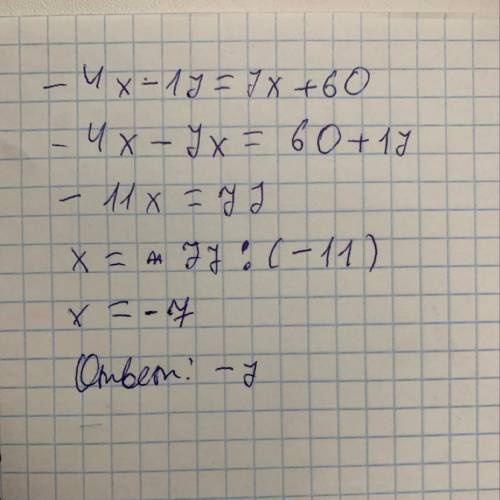 - 4x - 17 = 7x + 60
- 4x - 7x = 60 + 17
- 11x = 77
x = 77 : (-11)
x = -7
Ответ: -7